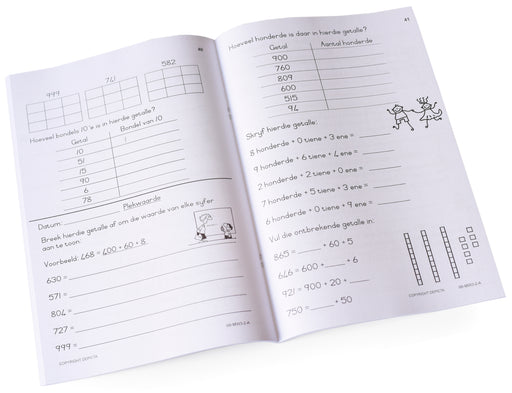 40
999 761 582
Hoeveel bondels 10'e is in hierdie getalle?
Getal Bondel van 10
10
51
15
90
6
78
Plekwaarde
Datum:
Breek hierdie getalle af om die waarde van elke syfer
aan te toon:
Voorbeeld: 468 = 400 + 60 + 8
630 =
571 =
804 =
727 =
999 =
COPYRIGHT DEPICTA
41
Hoeveel honderde is daar in hierdie getalle?
Getal Aantal honderde
900
760
809
600
515
94
Skryf hierdie getalle:
8 honderde + 0 tiene + 3 ene =
9 honderde + 6 tiene + 4 ene =
2 honderde + 2 tiene + 0 ene =
7 honderde + 5 tiene + 3 ene =
6 honderde + 0 tiene + 9 ene =
Vul die ontbrekende getalle in:
865 = + 60 + 5
646 = 600 + + 6
921 = 900 + 20 +
750 = + 50
COPYRIGHT DEPICTA